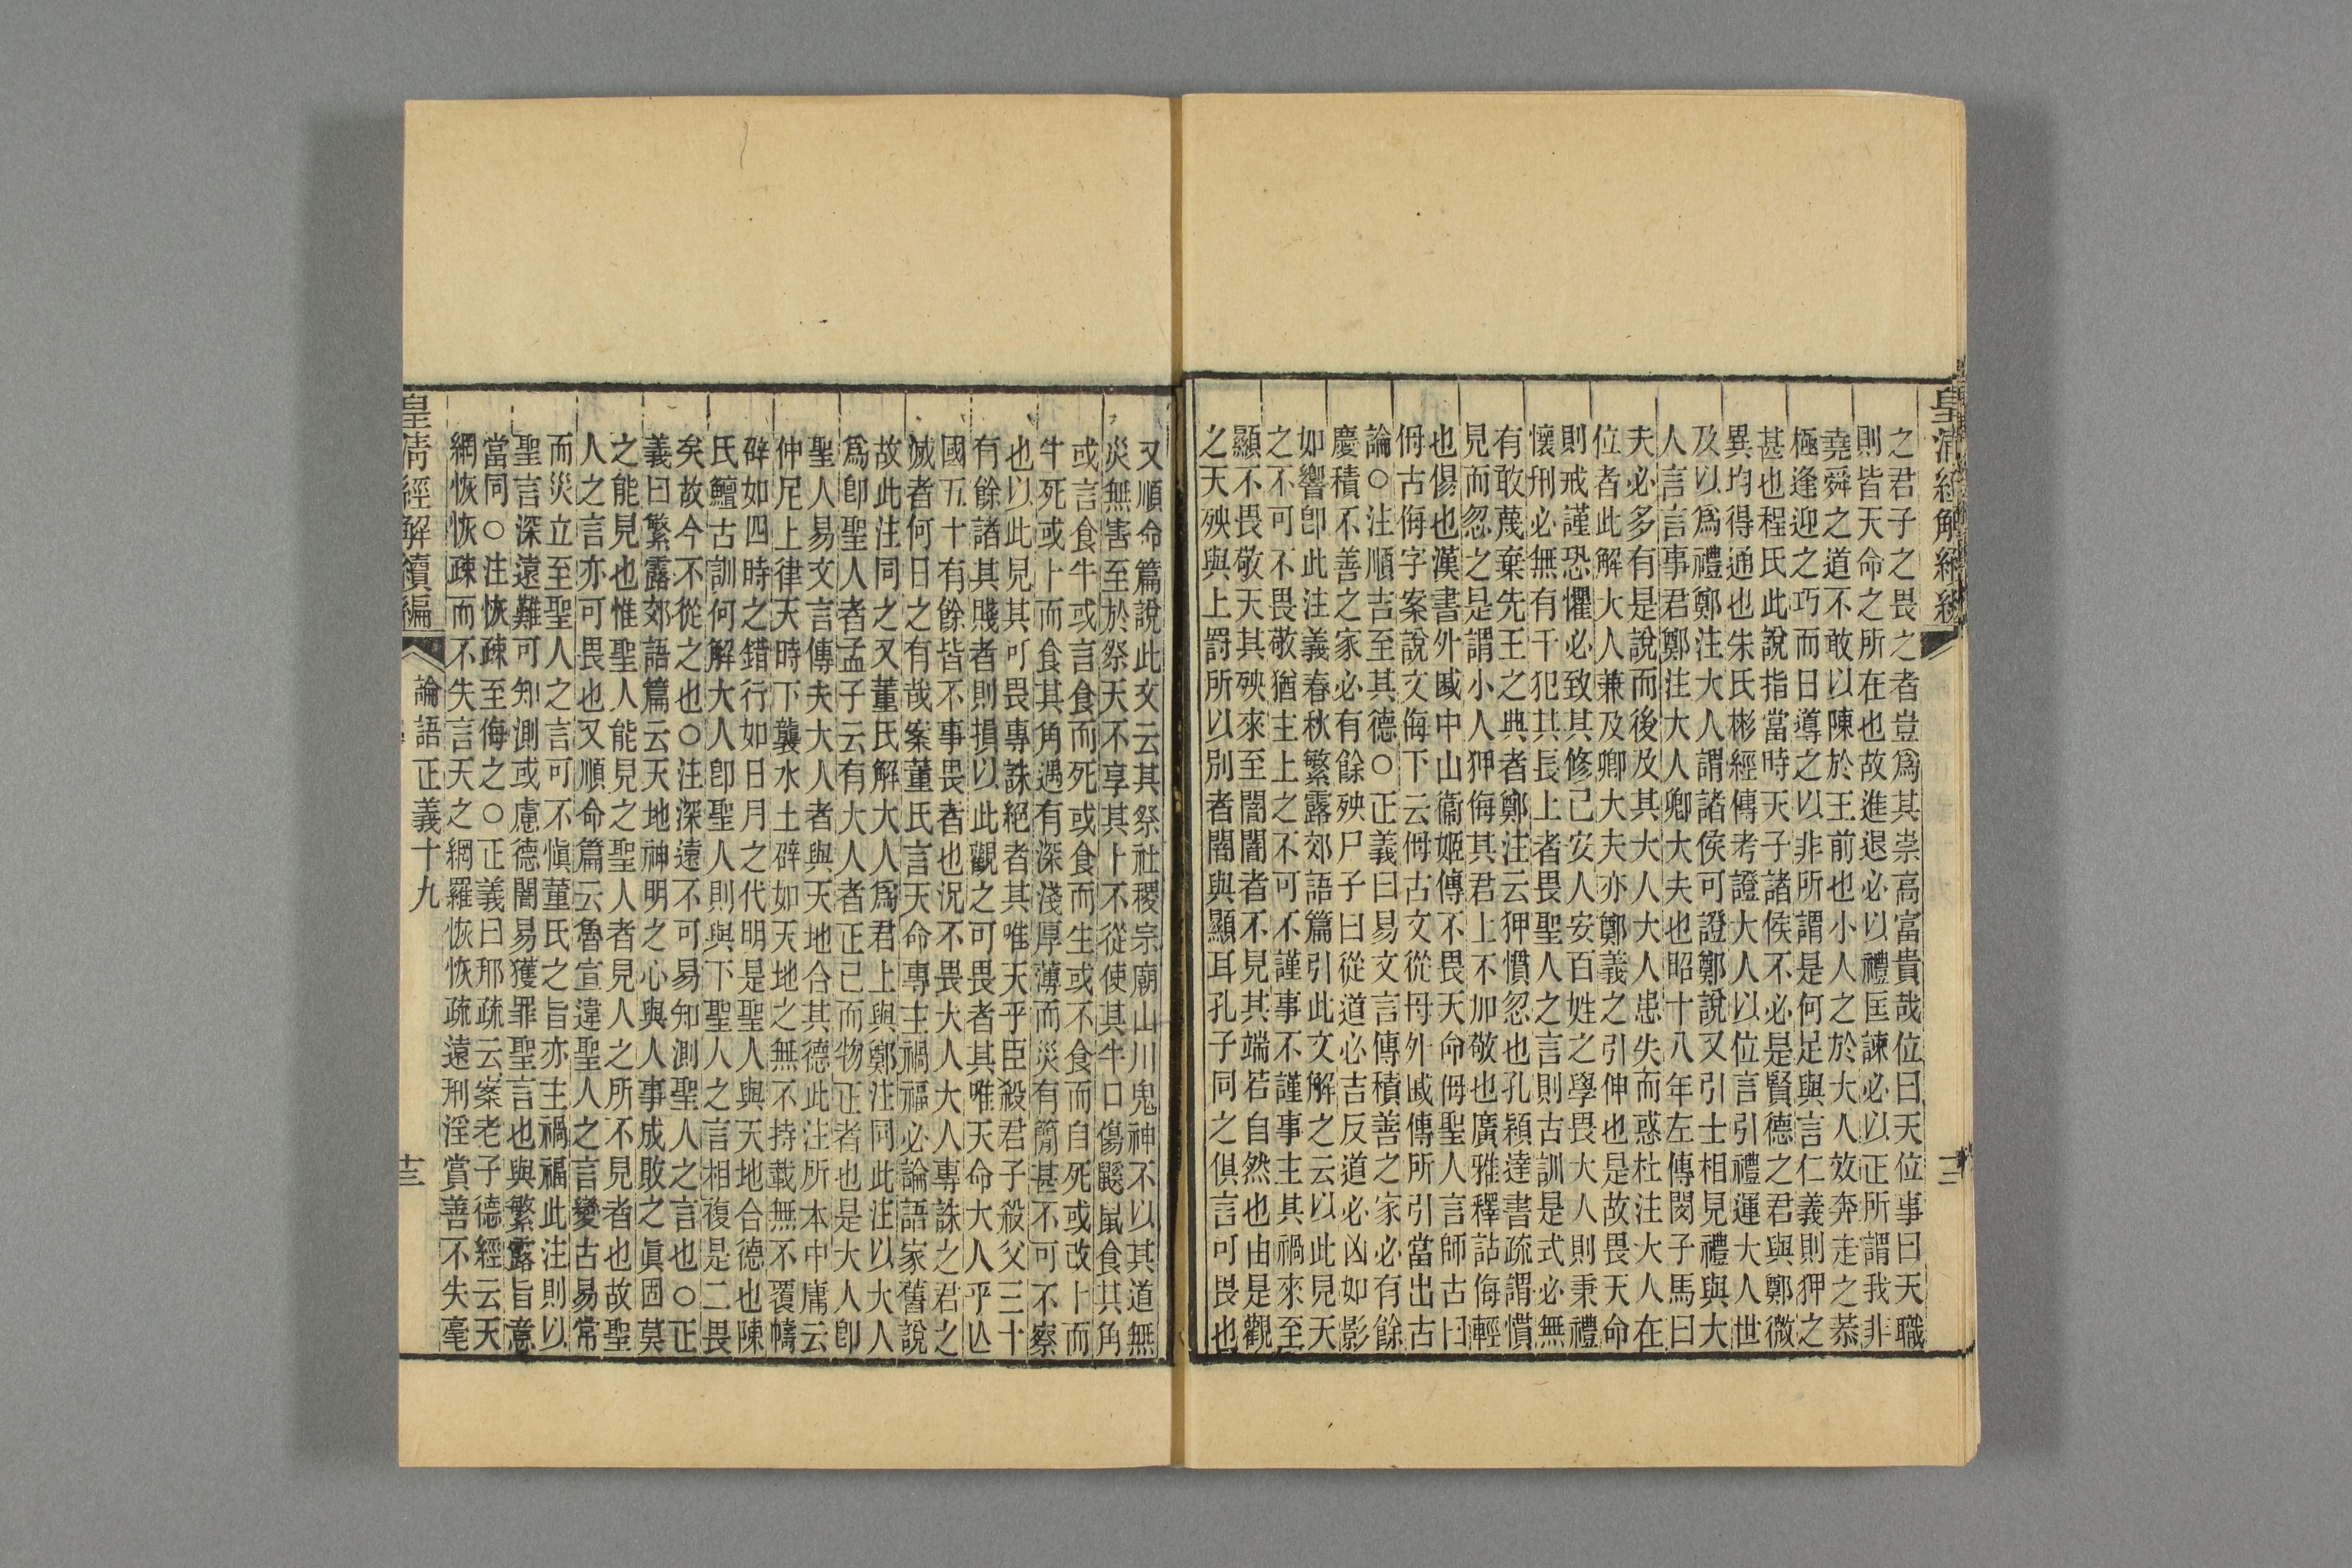 皇清經解經
之君子之畏之者豈爲其崇高富貴哉位曰天位事曰天職
則皆天命之所在也故進退必以禮匡諫必以正所謂我非
堯舜之道不敢以陳於王前也小人之於大人效奔走之恭
極逢迎之巧而日導之以非所謂是何足與言仁義則狎之
甚也程氏此說指當時天子諸侯不必是賢德之君與鄭微
異均得通也朱氏彬經傳考證大人以位言引禮運大人世
及以爲禮鄭注大人謂諸侯可證鄭說又引士相見禮與大
人言言事君鄭注大人卿大夫也昭十八年左傳閔子馬曰
夫必多有是說而後及其大人大人患失而惑杜注大人在
位者此解大人兼及卿大夫亦鄭義之引伸也是故畏天命
則戒謹恐懼必致其修己安人安百姓之學畏大人則秉禮
懷刑必無有干犯其長上者畏聖人之言則古訓是式必無
有敢蔑棄先王之典者鄭注云狎慣忽也孔穎達書疏謂慣
見而忽之是謂小人狎侮其君上不加敬也廣雅釋詁侮輕
也㑥也漢書外戚中山衞姬傳不畏天命㑄聖人言師古曰
㑄古侮字案說文侮下云㑄古文從母外戚傳所引當出古
論○注順吉至其德○正義曰易文言傳積善之家必有餘
慶積不善之家必有餘殃尸子曰從道必吉反道必凶如影
如響卽此注義春秋繁露郊語篇引此文解之云以此見天
之不可不畏敬猶主上之不可不謹事不謹事主其禍來至
顯不畏敬天其殃來至闇闇者不見其端若自然也由是觀
之天殃與上罸所以別者闇與顯耳孔子同之俱言可畏也
又順命篇說此文云其祭社稷宗廟山川鬼神不以其道無
災無害至於祭天不享其卜不從使其牛口傷鼷鼠食其角
或言食牛或言食而死或食而生或不食而自死或改卜而
牛死或卜而食其角遇有深淺厚薄而災有簡甚不可不察
也以此見其可畏專誅絕者其唯天乎臣殺君子殺父三十
有餘諸其賤者則損以此觀之可畏者其唯天命大人乎亾
國五十有餘皆不事畏者也況不畏大人大人專誅之君之
滅者何日之有哉案董氏言天命專主禍福必論語家舊說
故此注同之又董氏解大人爲君上與鄭注同此注以大人
爲卽聖人者孟子云有大人者正己而物正者也是大人卽
聖人易文言傳夫大人者與天地合其德此注所本中庸云
仲尼上律天時下襲水土辟如天地之無不持載無不覆幬
辟如四時之錯行如日月之代明是聖人與天地合德也陳
氏鱣古訓何解大人卽聖人則與下聖人之言相複是二畏
矣故今不從之也○注深遠不可易知測聖人之言也○正
義曰繁露郊語篇云天地神明之心與人事成敗之眞固莫
之能見也惟聖人能見之聖人者見人之所不見者也故聖
人之言亦可畏也又順命篇云魯宣違聖人之言變古易常
而災立至聖人之言可不愼董氏之旨亦主禍福此注則以
聖言深遠難可知測或慮德闇易獲罪聖言也與繁露旨意
當同○注恢疎至侮之○正義曰邢疏云案老子德經云天
網恢恢疎而不失言天之網羅恢恢疏遠刑淫賞善不失毫
皇清經解續編
論語正義十九